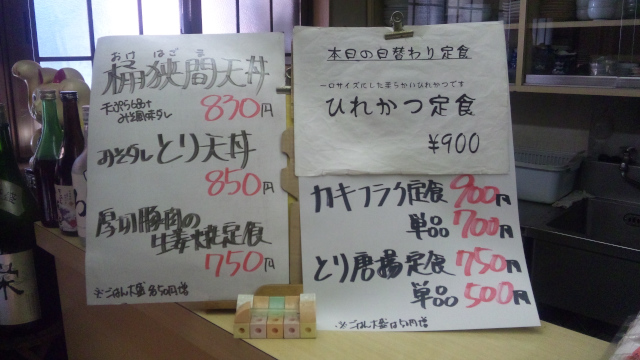 おけはざま
桶狭間天丼
みそ風味タレ
830円
みそダレとり天丼
850円
厚切豚肉の
生姜焼定食
750円
※ごはん大盛50円増
本日の日替わり定食
一口サイズにした柔らかいひれかつです
ひれかつ定食
¥900
カキフライ定食 900円
単品 700円
とり唐揚定食 750円
単品 500円
※ごはん大盛は50円増
栄